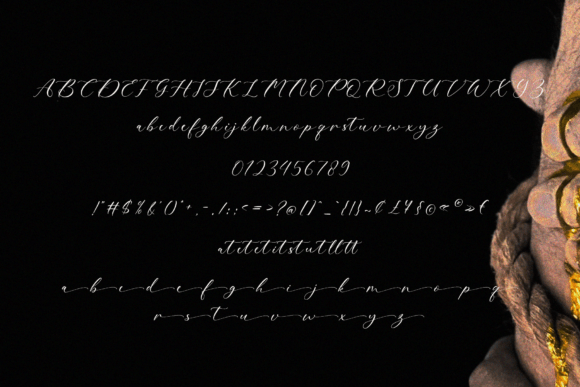 ABCDEFGHIJKLMNOPQRSTUVWXYZ
abcdefghijklmnopqrstuvwxyz
0123456789
!"#$%&'()*+,-./:;<=>?@[]^_`{|}~¢£¥§©«®»
atetetitstutltt
a b c d e f g h i j k l m n o p q
r s t u v w x y z